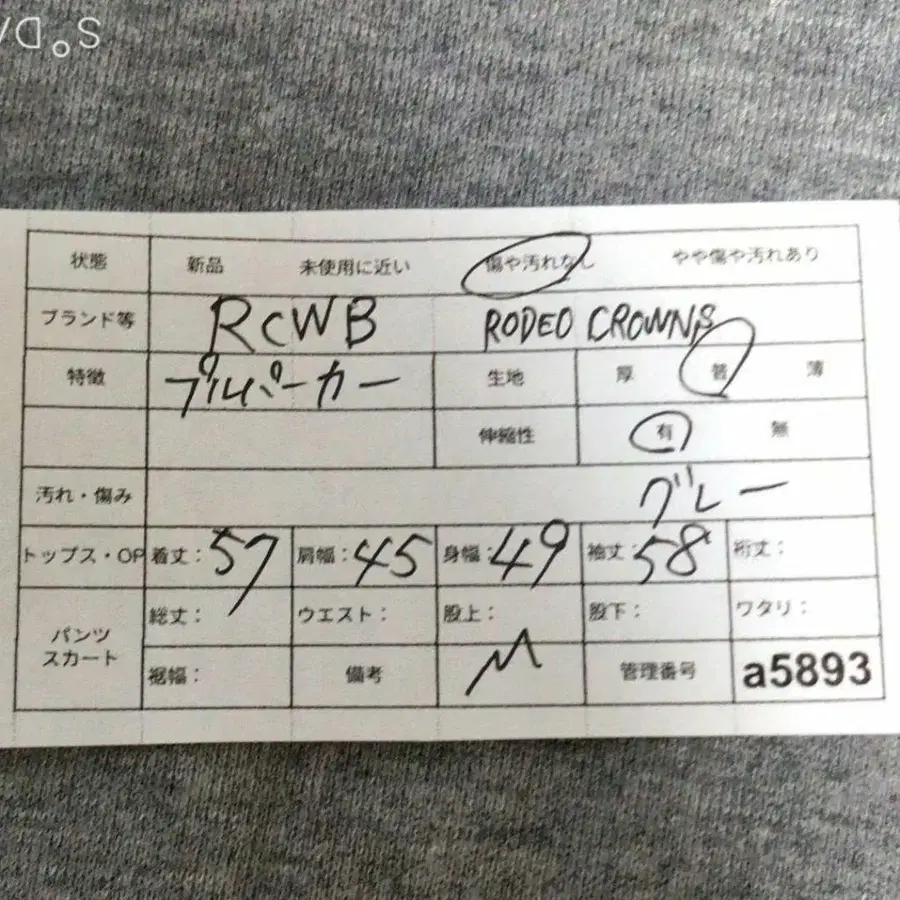 状態 新品 未使用に近い 傷や汚れなし やや傷や汚れあり
ブランド等 RCWB RODEO CROWNS
特徴 プルパーカー 生地 厚 普 薄
伸縮性 有 無
汚れ・傷み グレー
トップス・OP 着丈：57 肩幅：45 身幅：49 袖丈：58 裄丈：
パンツ スカート 総丈： ウエスト： 股上： 股下： ワタリ：
裾幅： 備考 M 管理番号 a5893